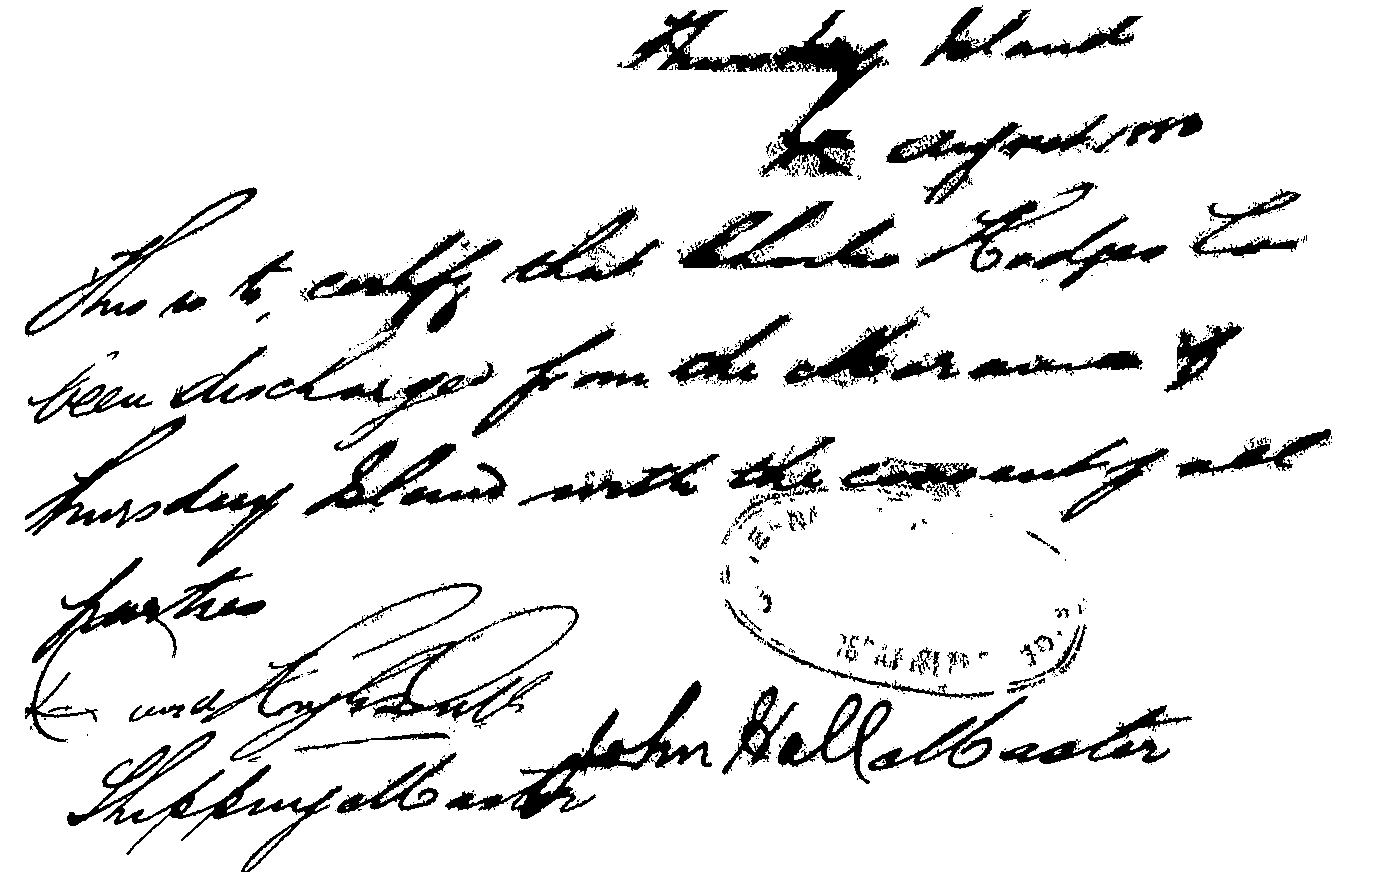 Thursday Island
August 1880
This is to certify that Charles Hodges has
been discharged from the of
Thursday Island with the consent of all
parties
John Hall Master
Shipping Master